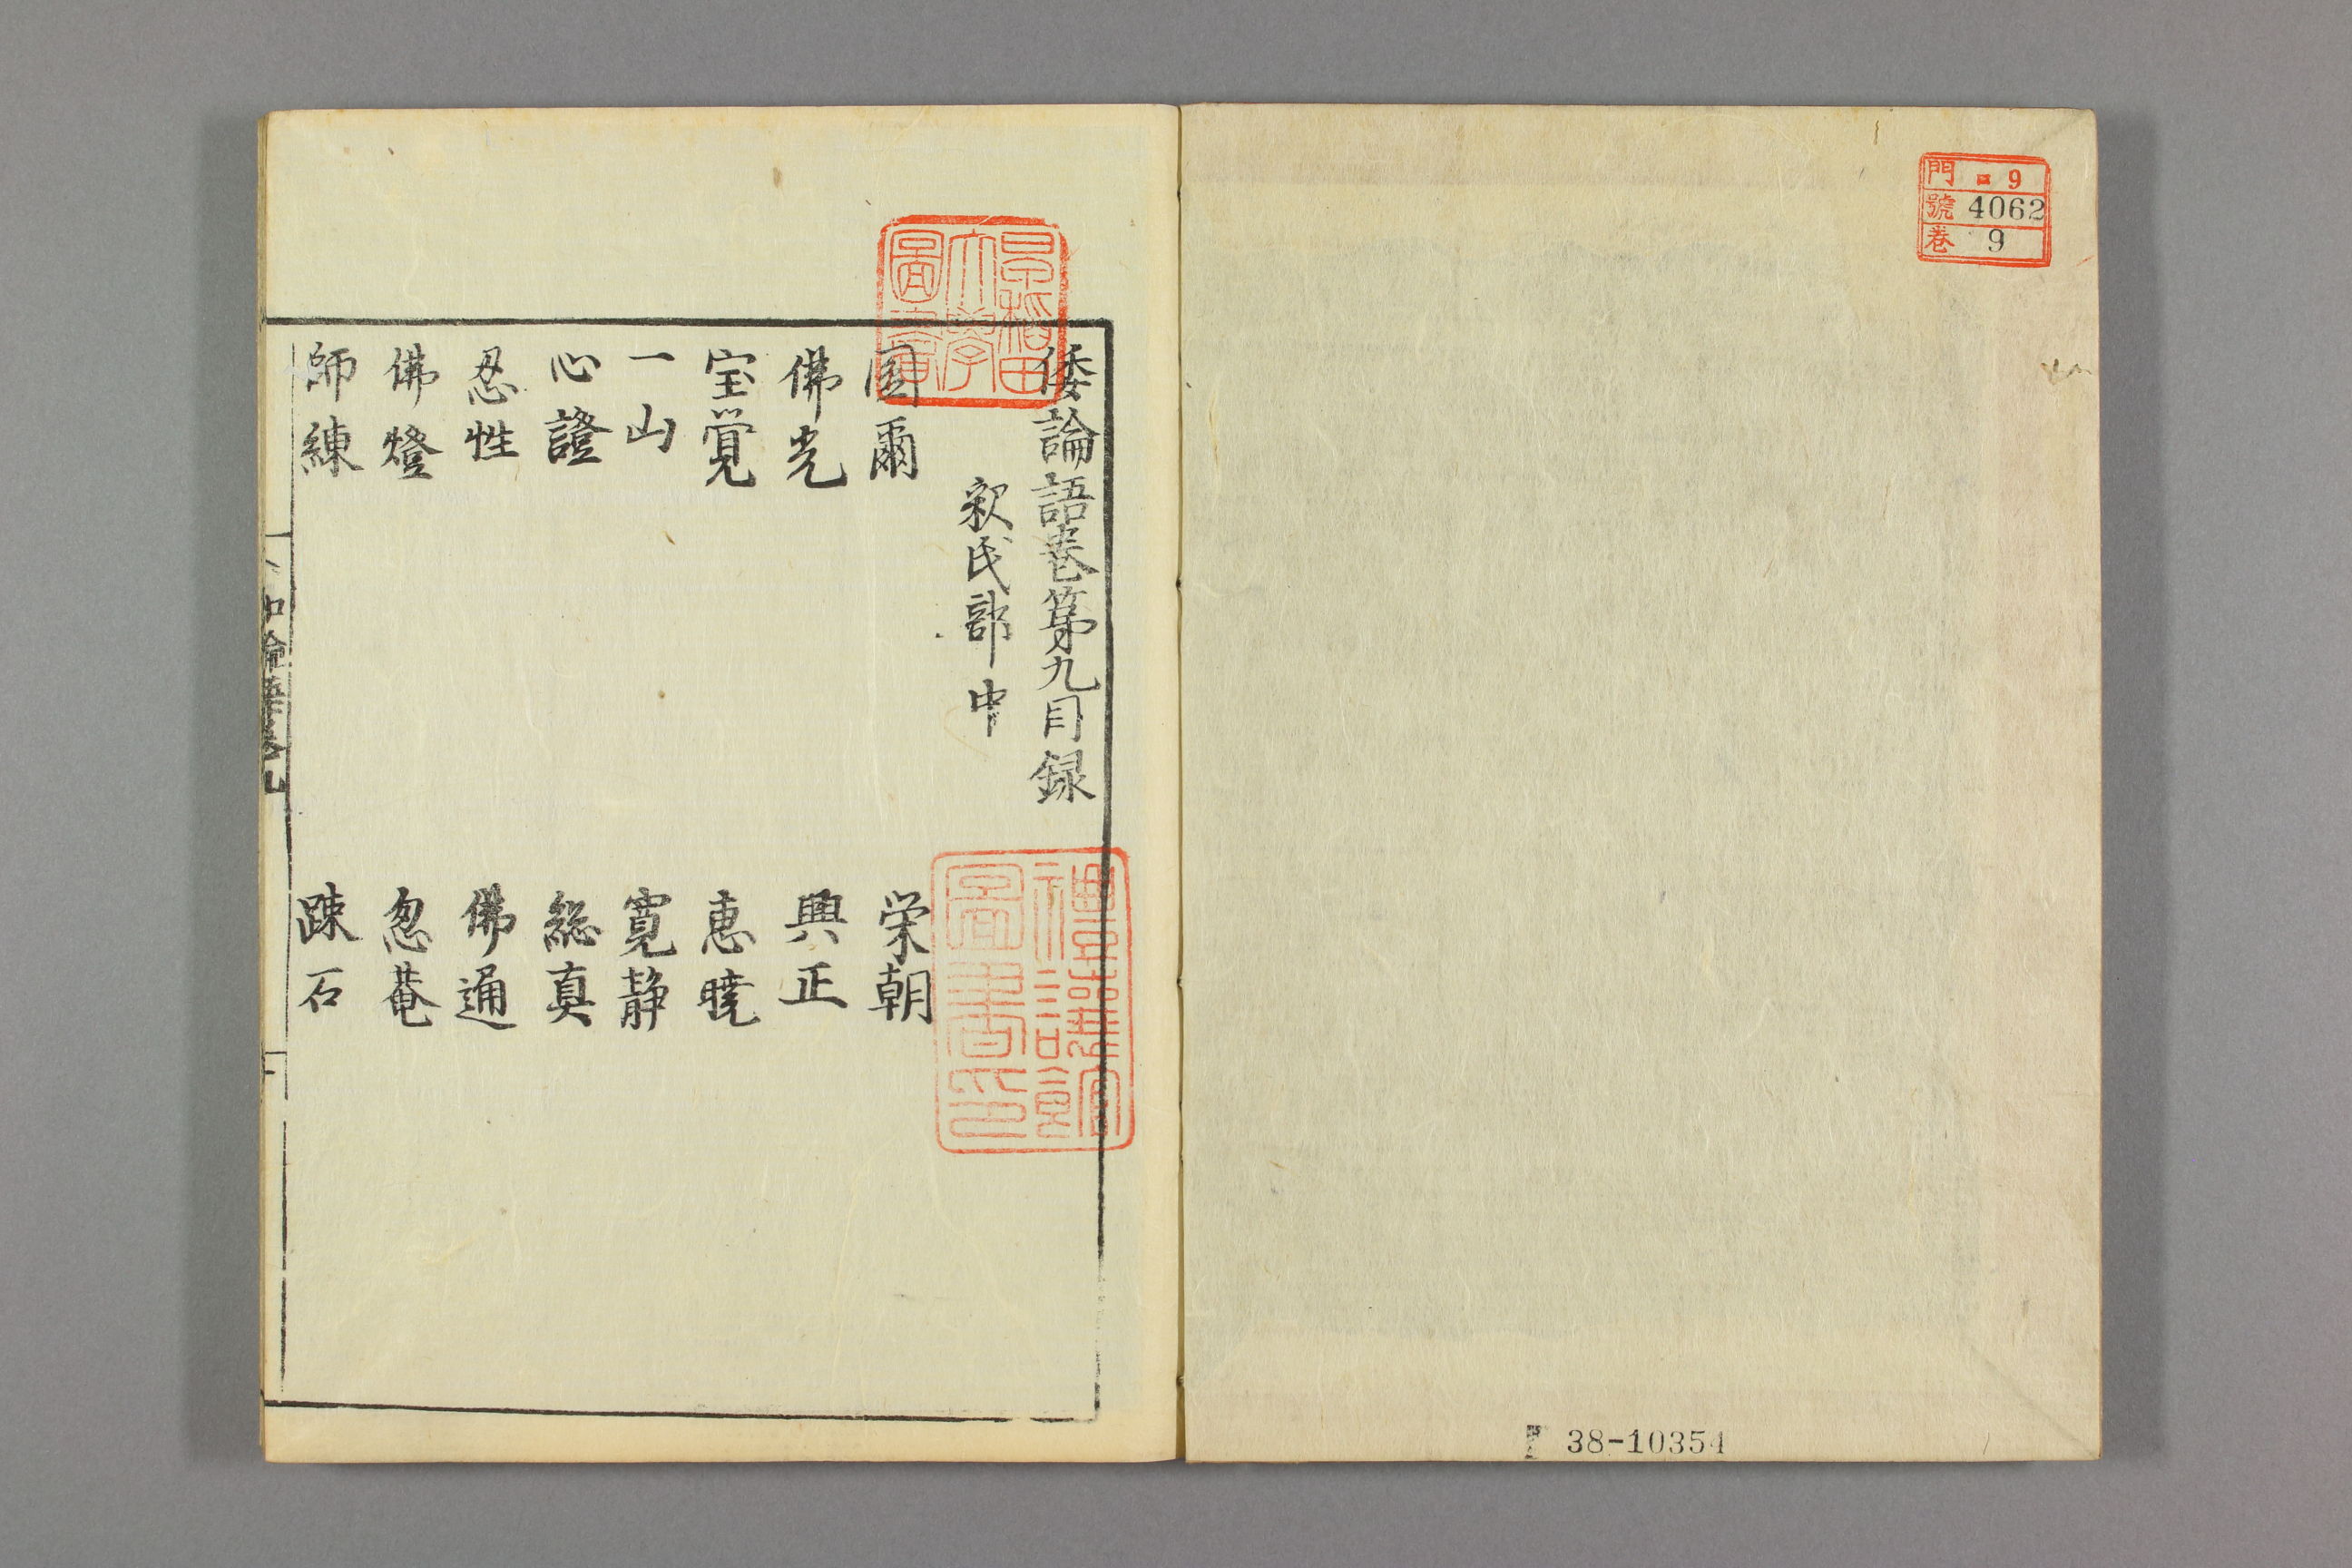 門 ロ 9
號 4062
巻 9
38-10354
早稲田
大学
圖書
倭論語巻第九目録
釈氏部中
圓爾 栄朝
佛光 興正
宝覚 恵曉
一山 寛静
心證 総真
忍性 佛通
佛燈 忽菴
師練 踈石